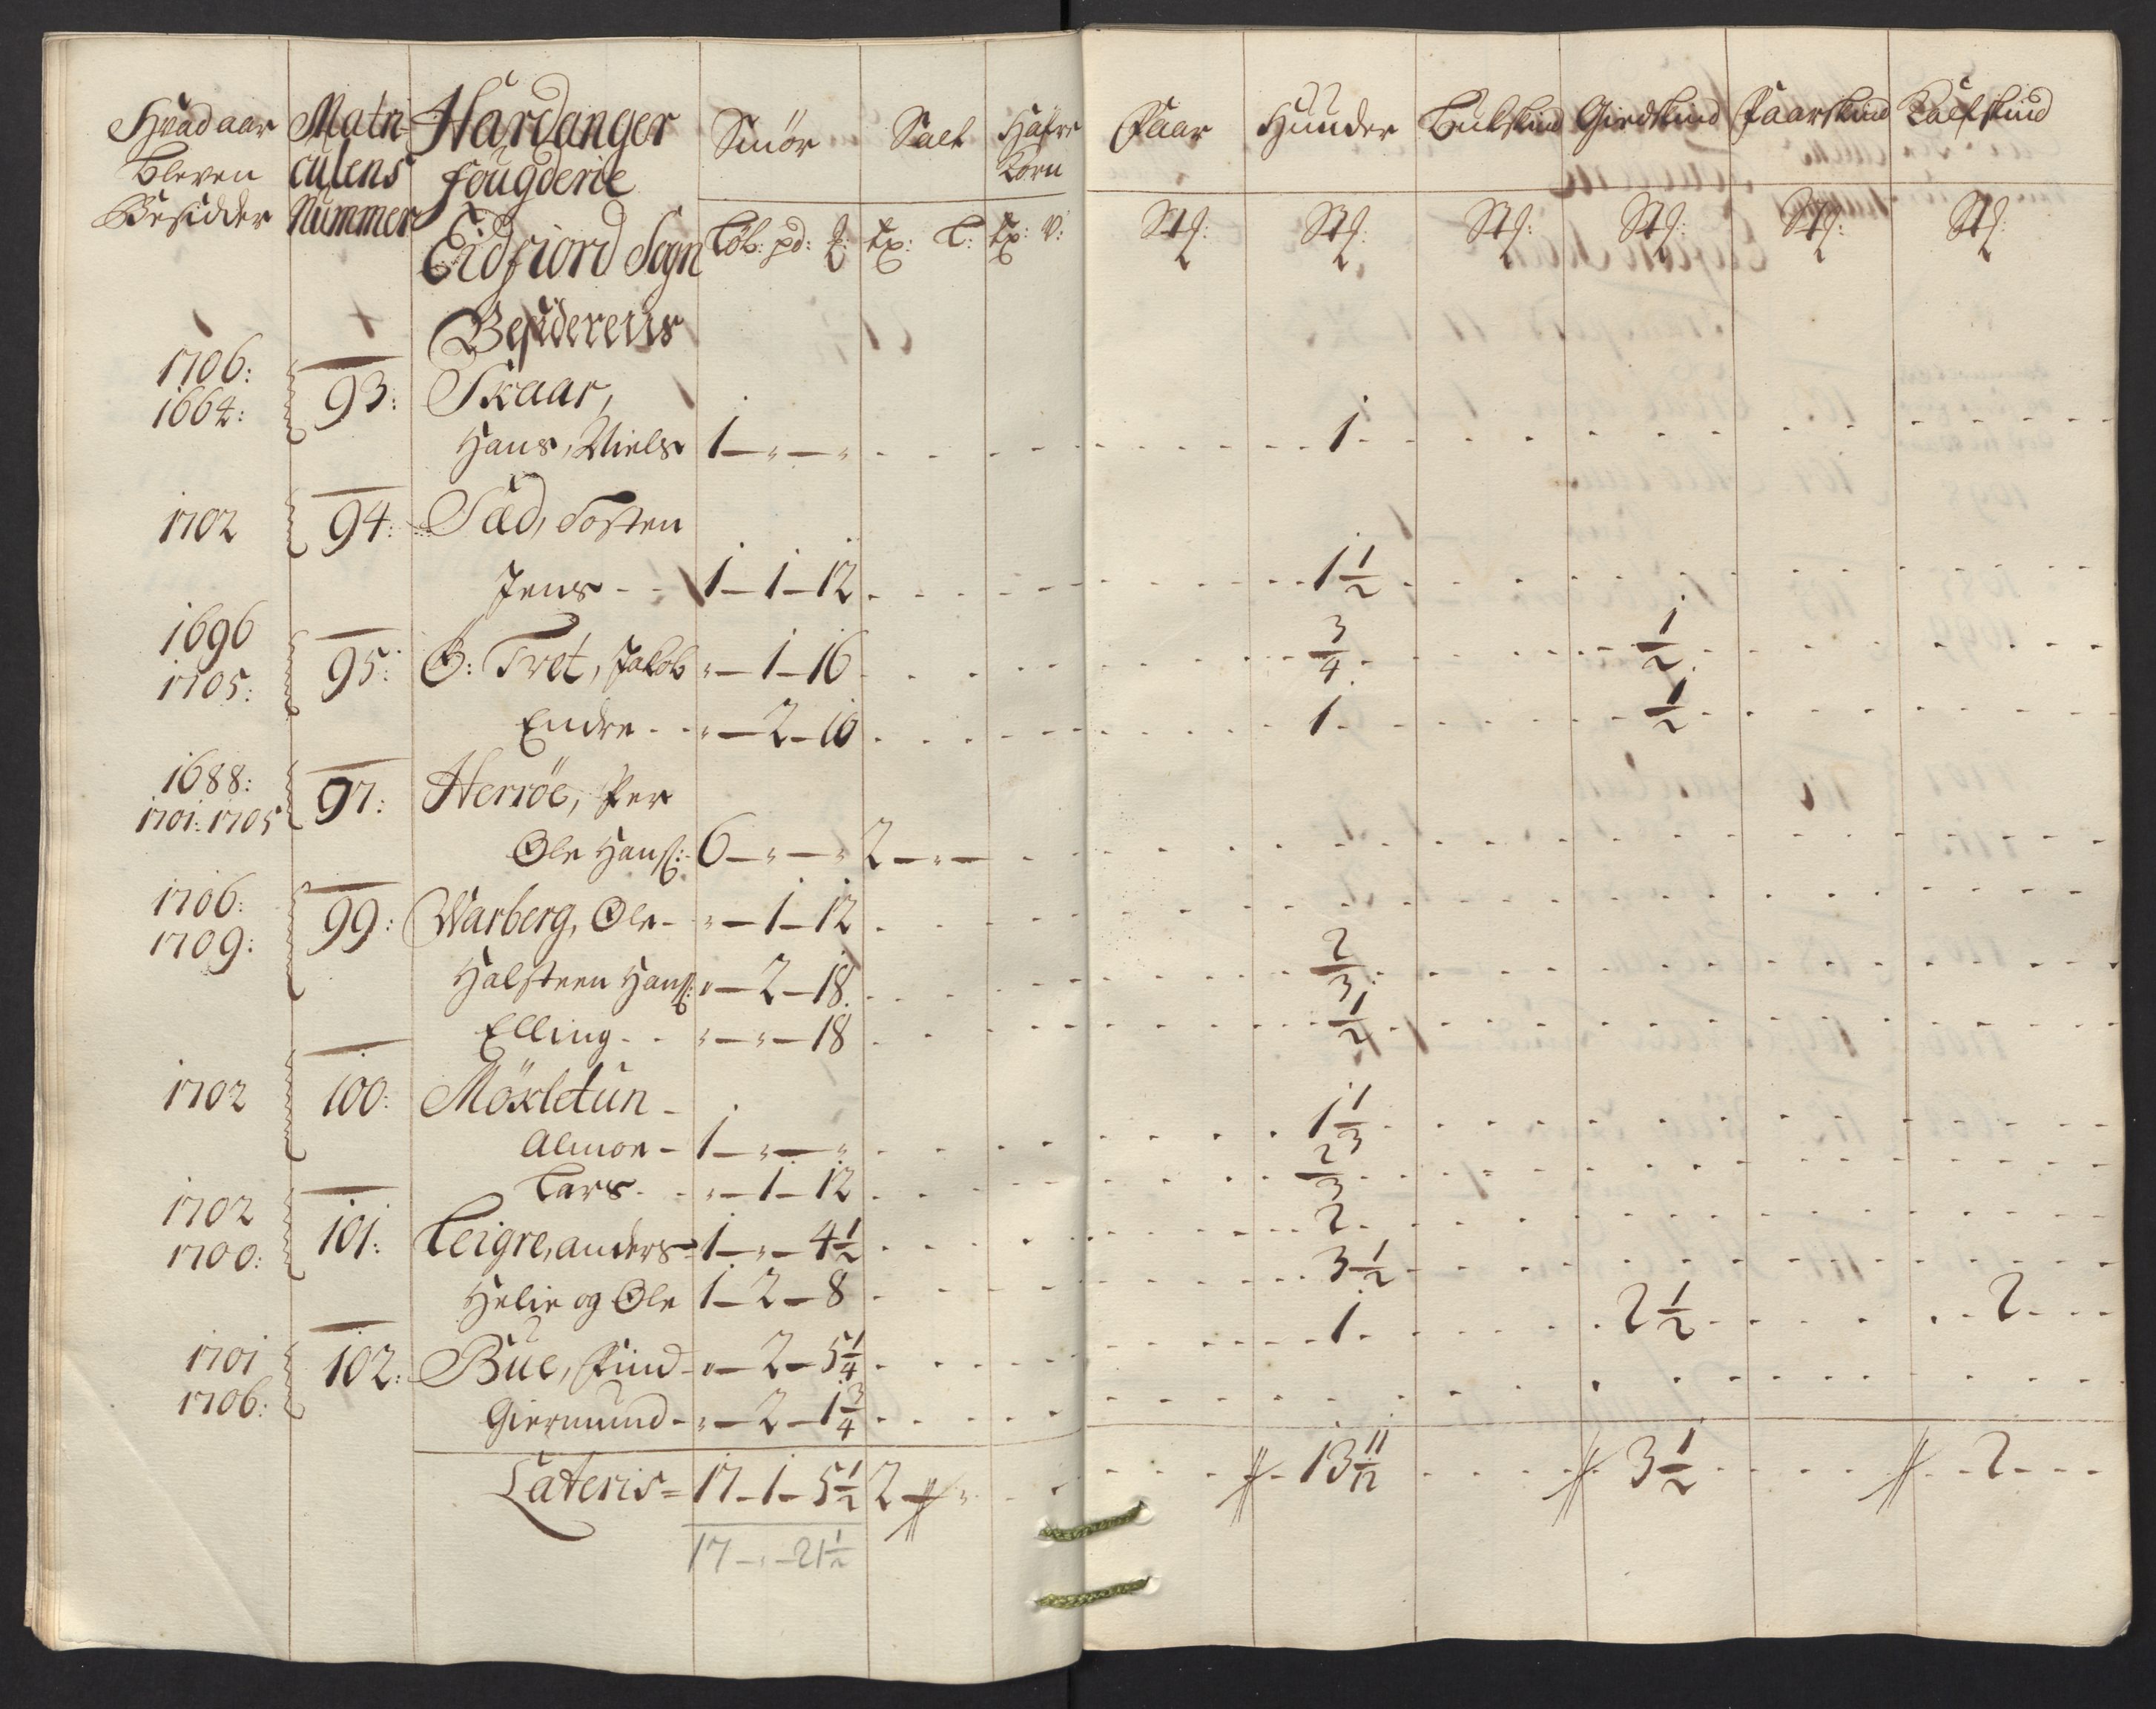 Hvad aar bleven Besidder | Matriculens Nummer | Hardanger fougderie Eidfiord Sogn Besidderens | Smör | Salt | Hafre Korn | Faar | Huuder | Bukskind | Giedskind | Faarskind | Kalfskind
Løb: pd: | tp: | tp: v: | St: | St: | St: | St: | St: | St:
1706: 1664: | 93: | Skaar,
Hans, Niels | 1 - " - " | 1
1702 | 94: | Sæd, Tosten
Jens - - | 1 - 1 - 12 | 1 1/2
1696 1705: | 95: | Ö: Tvet, Jakob | " - 1 - 16 | 3/4 | 1/2
Endre - - | " - 2 - 16 | 1 | 1/2
1688: 1701: 1705 | 97: | Herröe, Per
Ole Hanss: | 6 - " - " | 2 - " -
1706: 1709: | 99: | Warberg, Ole - | " - 1 - 12
Halsteen Hanss: | " - 2 - 18 | 2/3
Elling - - | " - " - 18 | 1/2
1702 | 100: | Möxletun -
Almoe - | 1 - " - " | 1 1/3
Lars - - | " - 1 - 12 | 2/3
1702 1700: | 101: | Leigre, anders - | 1 - " - 4 1/2 | 2
Helie og Ole | 1 - 2 - 8 | 3 1/2
1701 1706: | 102: | Bue, Find - | " - 2 - 5 1/4 | 1 | 2 1/2 | 2
Giermund - | " - 2 - 1 3/4
Lateris = | 17 - 1 - 5 1/2 | 2 - " | 13 11/12 | 3 1/2 | 2
17 - " - 21 1/2